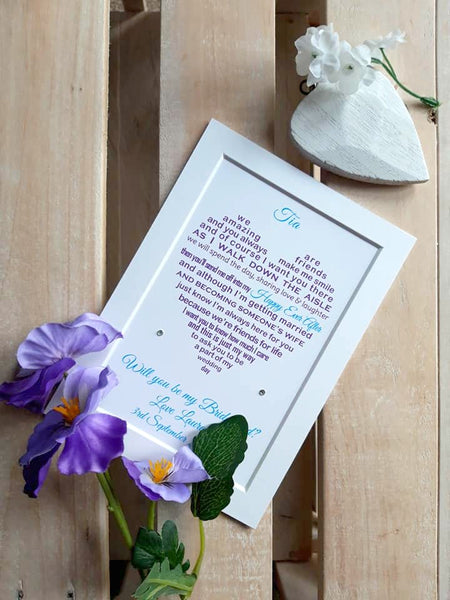 Tia
we are
amazing friends
and you always make me smile
and of course I want you there
AS I WALK DOWN THE AISLE
we will spend the day, sharing love & laughter
then you'll send me off into my Happy Ever After
and although I'm getting married
AND BECOMING SOMEONE'S WIFE
just know I'm always here for you
because we're friends for life
I want you to know how much I care
and this is just my way
to ask you to be
a part of my
wedding
day
Will you be my
Love
3rd September